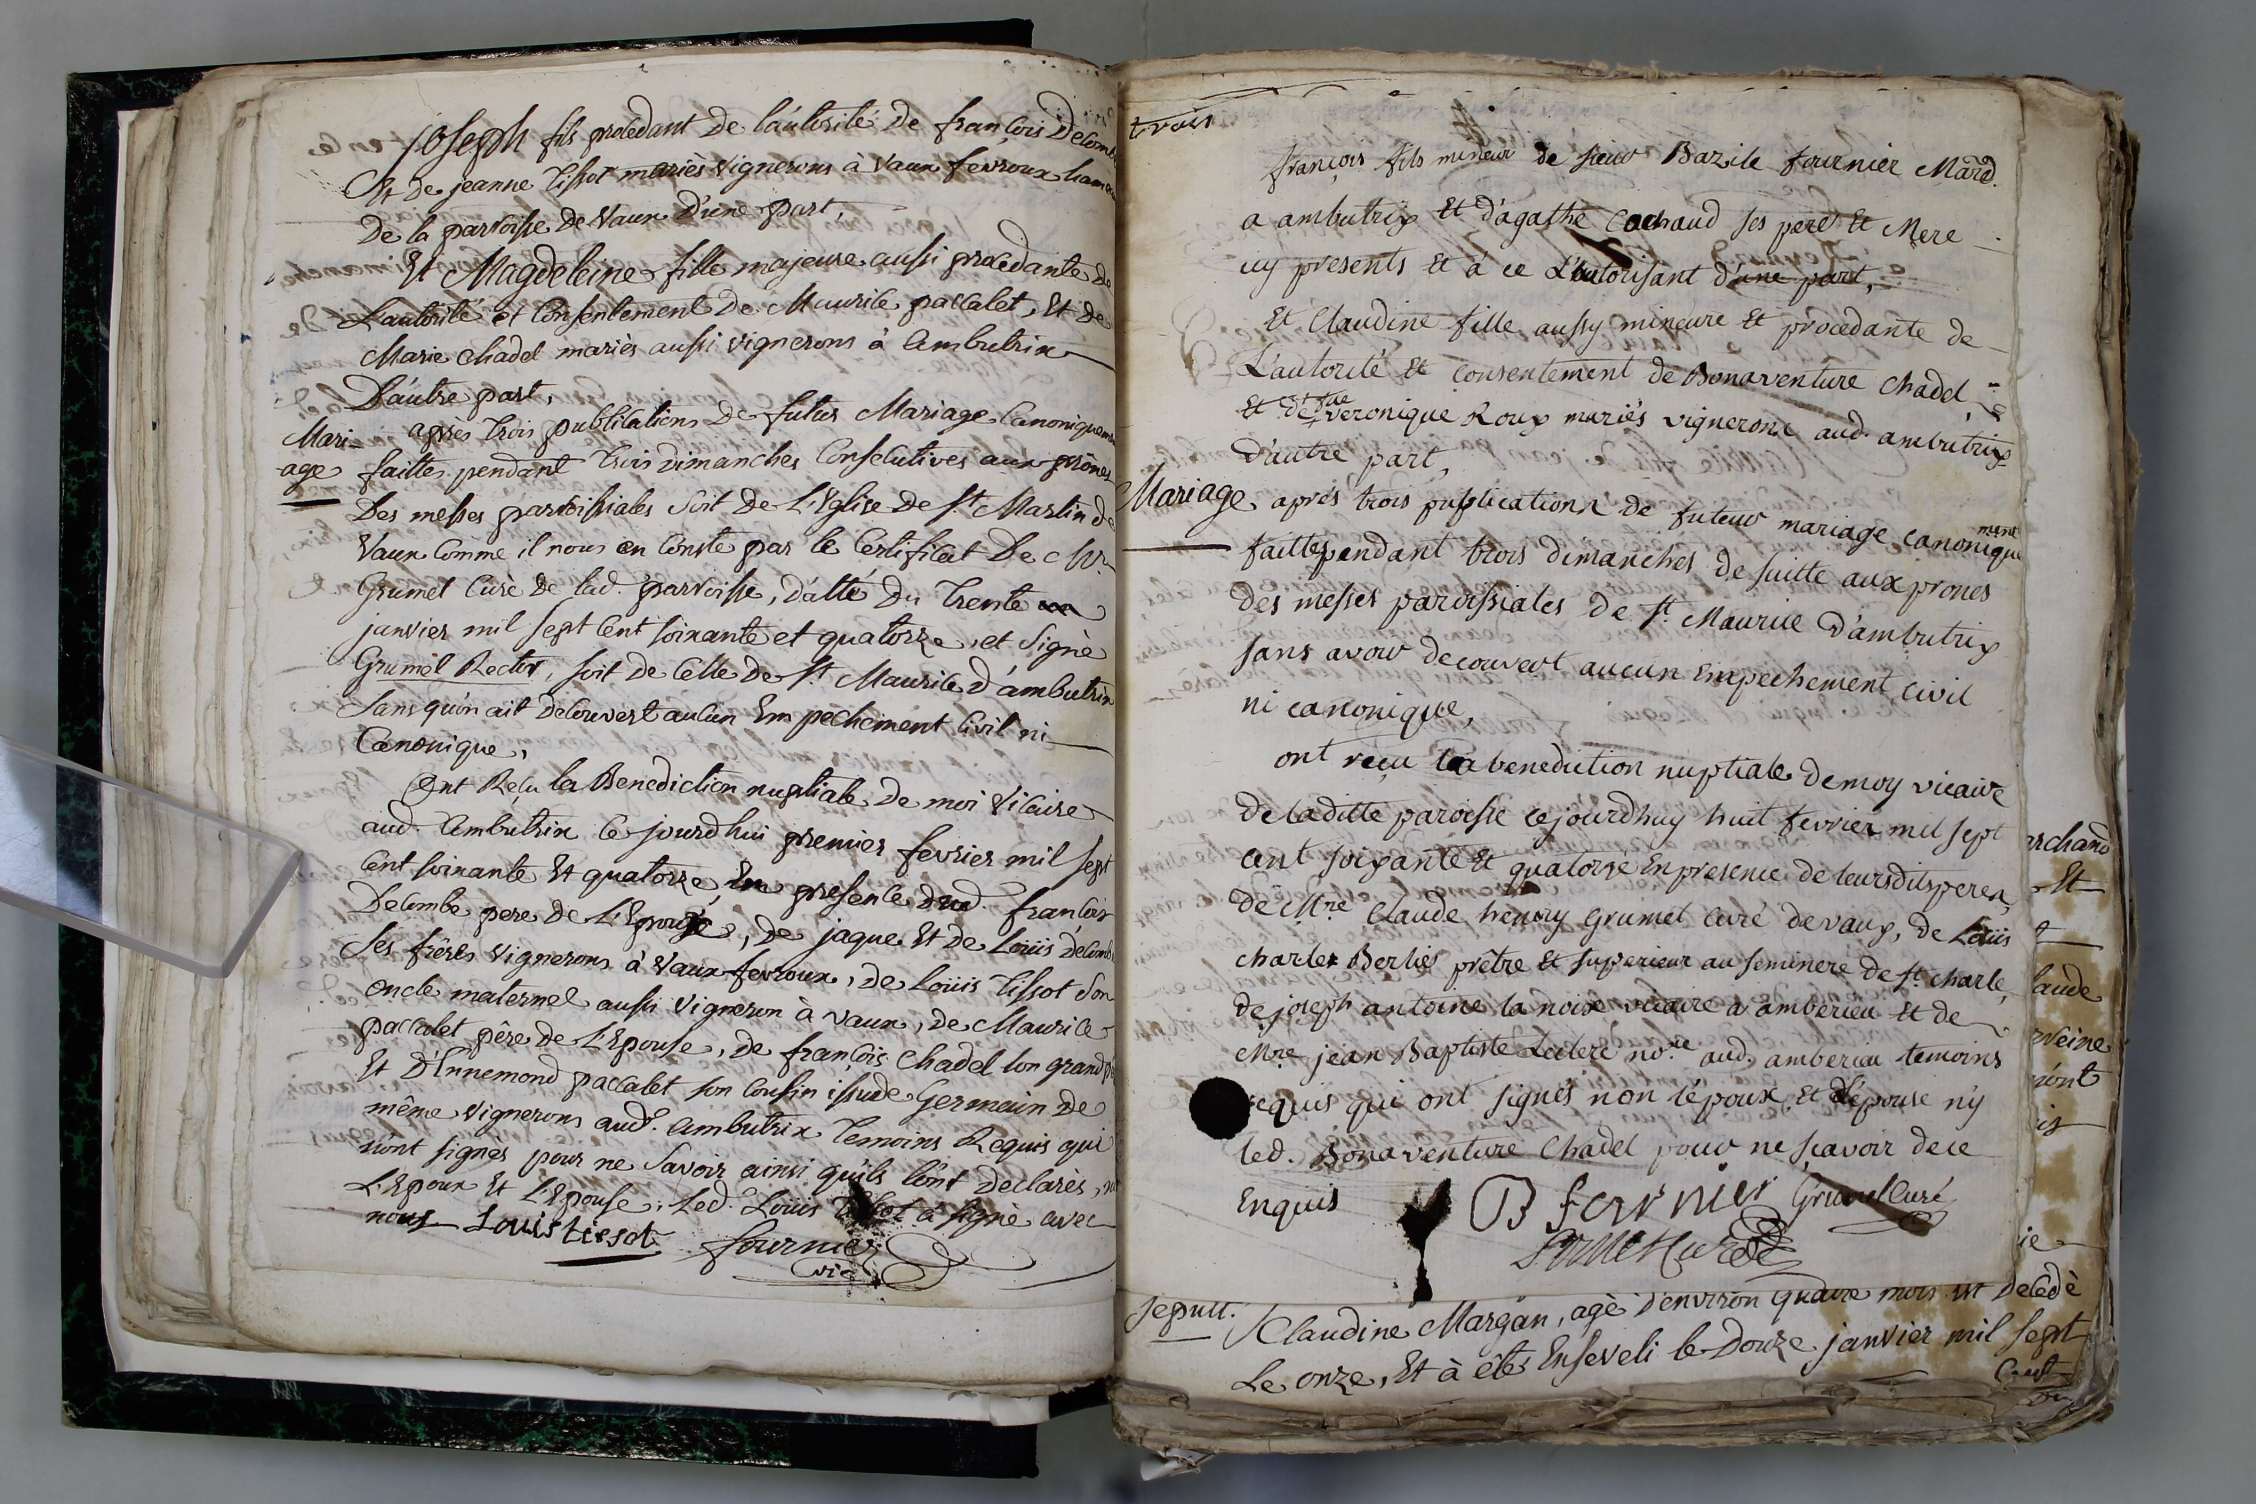 joseph fils procedant de l'autorité de françois Decomb
Et de jeanne Tissot mariés vignerons à vaux fevroux hamea
De la parroisse de vaux D'une part,
Et Magdeleine fille majeure aussi procedante de
L'autorité et consentement de Maurice paccalet, Et de
Marie chadel mariés aussi vignerons à Ambutrix
D'autre part,
Mari-
age
après trois publications De futur Mariage canoniqueme
faittes pendant trois dimanches consecutives aux prônes
Des messes parroissiales soit de L'Eglise de St. Martin de
vaux comme il nous en conste par le certificat De Mr.
Grumet curé de lad. parroisse, datté du trente
janvier mil sept cent soixante et quatorze, et signé
Grumet Recter, soit de celle de St. Maurice d'ambutrix
sans qu'on ait decouvert aucun Empechement civil ni
canonique,
Ont Reçu la Benediction nuptiale de moi vicaire
aud. Ambutrix ce jourd'hui premier fevrier mil sept
cent soixante Et quatorze, En presence dud. françois
Decombe pere de L'Epoux, de jaque Et de Loüis decomb
ses fréres vignerons à vaux fevroux, de Loüis Tissot son
oncle maternel aussi vigneron à vaux, de Maurice
paccalet pére de L'Epouse, de françois chadel son grand p
Et d'Ennemond paccalet son cousin issude Germain de
même vignerons aud. ambutrix temoins Requis qui
n'ont signés pour ne savoir ainsi qu'ils l'ont declarés, n
L'Epoux Et L'Epouse, Led. Loüis Tissot à signé avec
nous Louis tissot fournier
vic
trois
françois fils mineur de sieur Bazile fournier Marcd.
a ambutrix Et d'agathe Cochaud ses pere Et Mere
icy presents Et à ce L'autorisant d'une part,
Et Claudine fille aussy mineure Et procedante de
L'autorité Et consentement de Bonaventure Chadel,
Et de veronique Roux mariés vignerons aud. ambutrix
D'autre part,
Mariage
aprés trois publications de futeur mariage canonique
ment
faittespendant trois dimanches de suitte aux prones
des messes paroissiales de St. Maurice d'ambutrix
sans avoir decouvert aucun empechement civil
ni canonique,
ont reçu la benediction nuptiale demoy vicaire
de laditte paroisse cejourdhuy huit fevrier mil sept
cent soixante Et quatorze En presence de leursdits peres,
de Mre Claude henry Grumet curé de vaux, de Loüis
charles Berlié prêtre Et superieur au seminere de St. charle,
de joseph antoine la noix vicaire a amberieu Et de
Mre jean Baptiste Leclerc nore. aud. amberieu temoins
requis qui ont signés non l'époux, Et L'épouse ny
led. Bonaventure Chadel pour ne sçavoir de ce
Enquis
B fournier Grumet Curé
rchand
Et
laude
n'ont
sepult.
Claudine Margan, agé d'environ quatre mois est decedé
Le onze, Et à étés Enseveli le Douze janvier mil sept
Cent